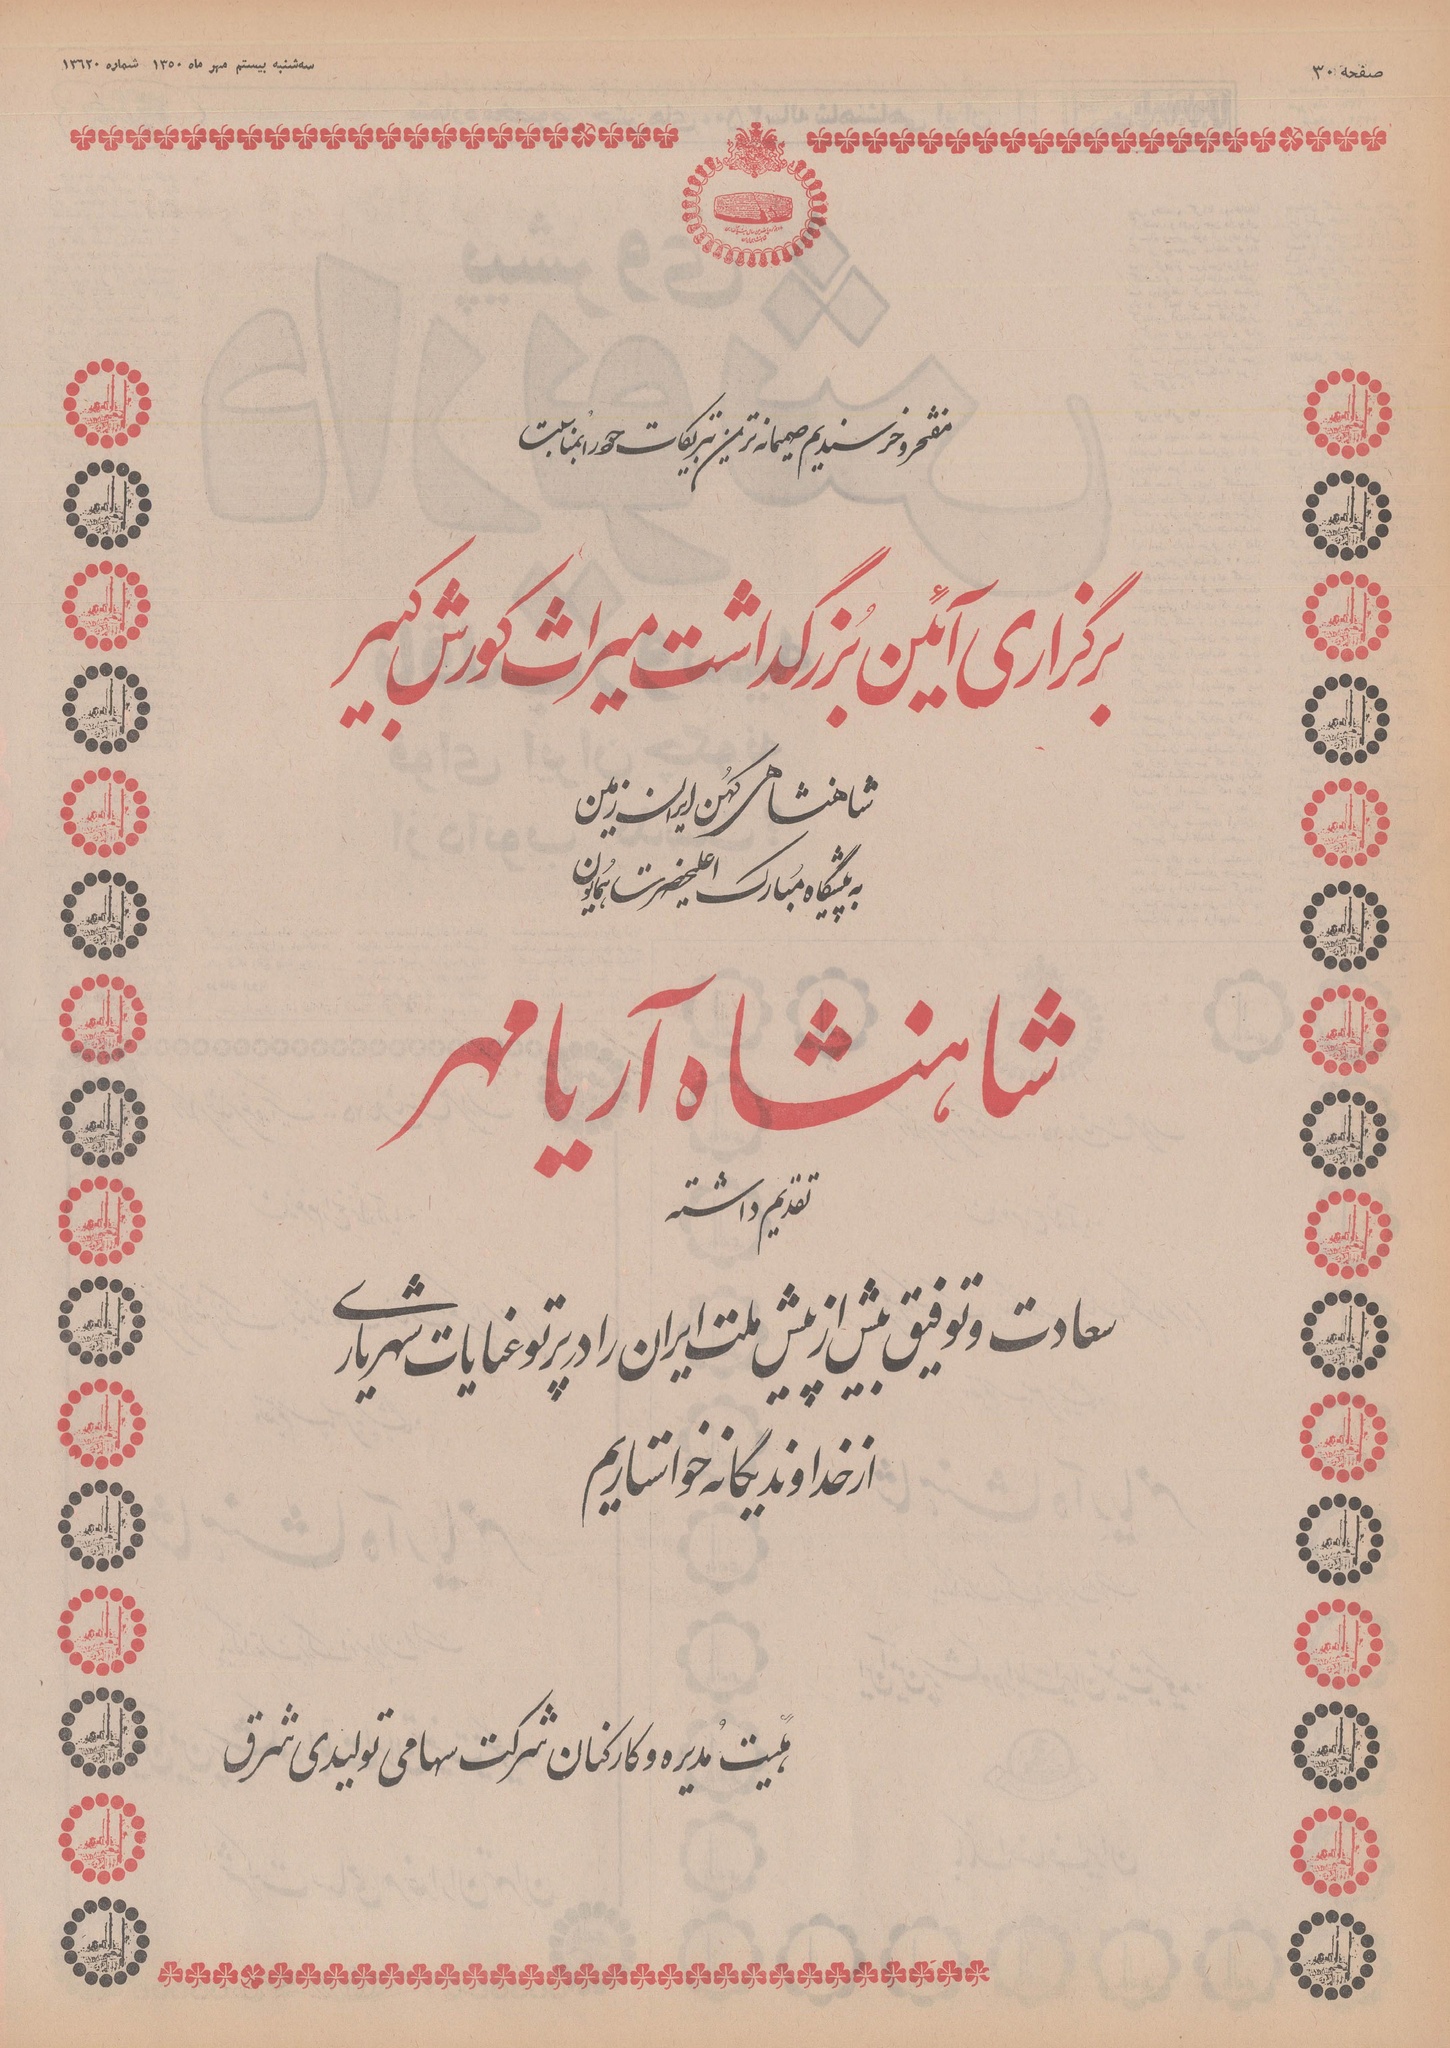 صفحه ۳۰
سه‌شنبه بیستم مهر ماه ۱۳۵۰ شماره ۱۳٦۲۰
مفتخر و خرسندیم صمیمانه ترین تبریکات خود را بمناسبت
برگزاری آئین بزرگداشت میراث کورش کبیر
شاهنشاهی کهن ایران زمین
به پیشگاه مبارک اعلیحضرت همایون
شاهنشاه آریامهر
تقدیم داشته
سعادت و توفیق بیش از پیش ملت ایران را در پرتو عنایات شهریاری
از خداوند یگانه خواستاریم
هیئت مدیره و کارکنان شرکت سهامی تولیدی شرق